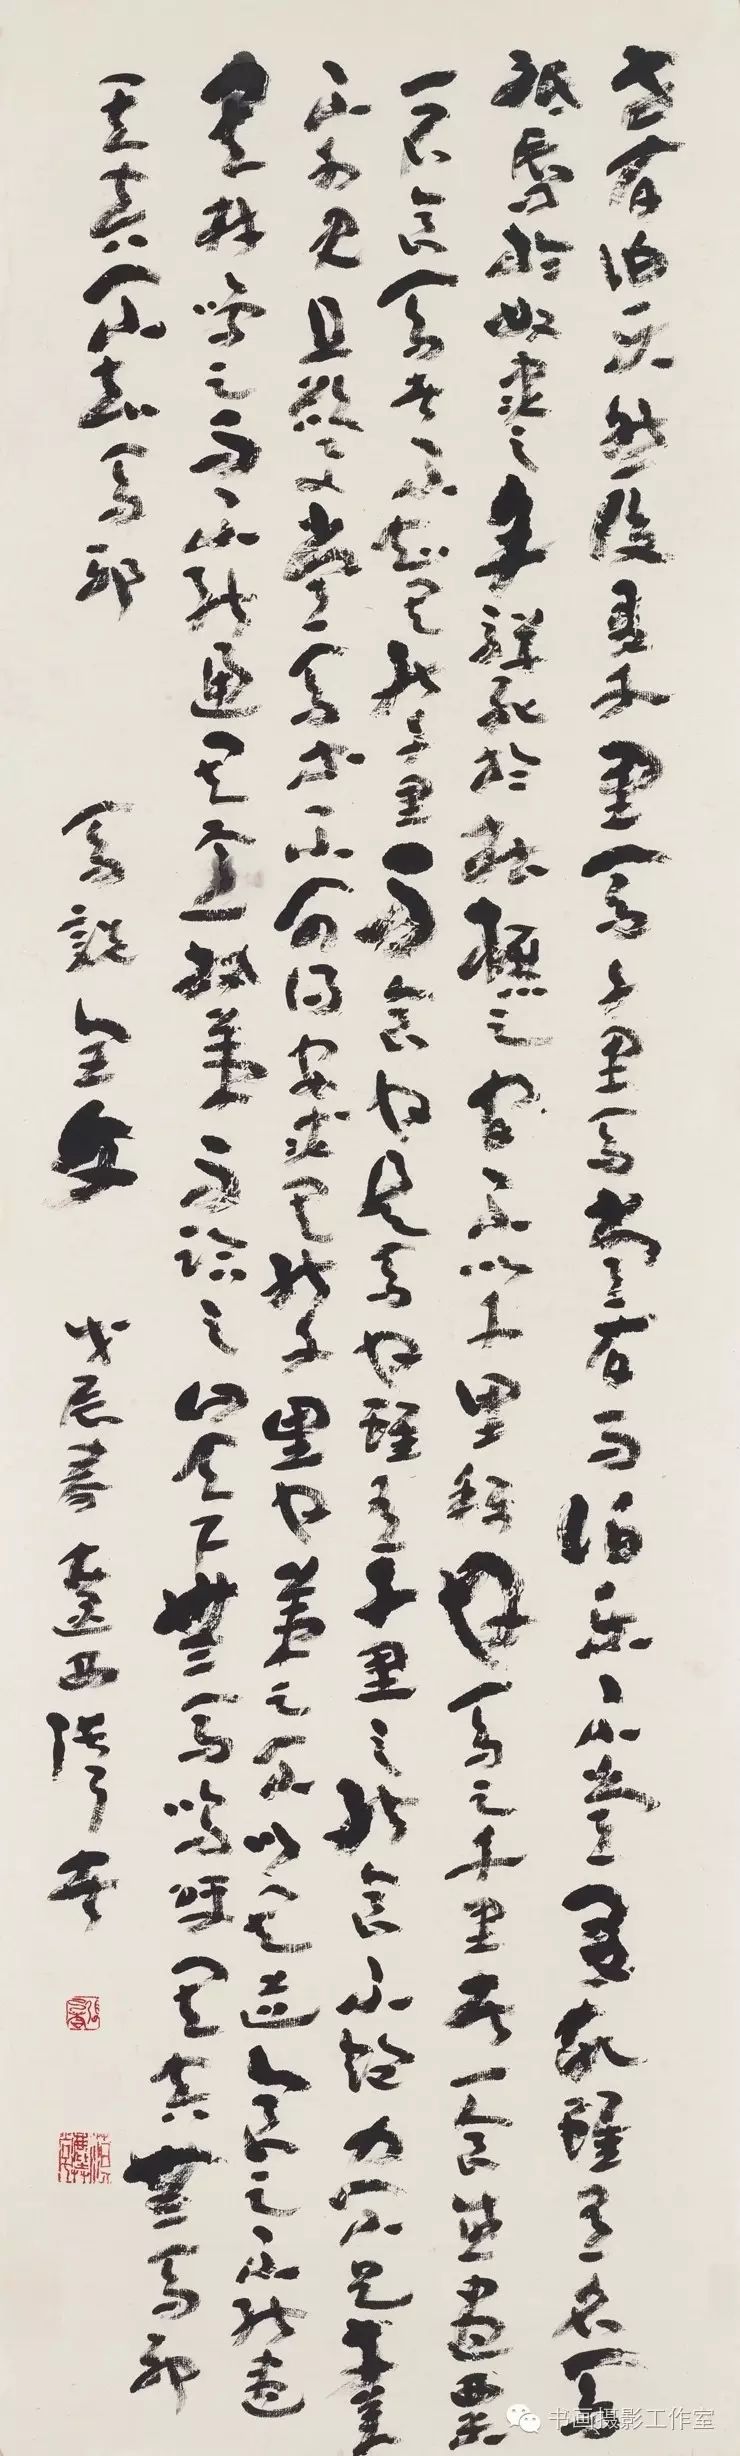 世有伯樂然後有千里馬千里馬常有而伯樂不常有故雖有名馬
祇辱於奴隶之手駢死於槽櫪之間不以千里稱也馬之千里者一食或盡粟
一石食馬者不知其能千里而食也是馬也雖有千里之能食不飽力不足才美
不外見且欲与常馬等不可得安求其能千里也策之不以其道食之不能盡
其材鳴之而不能通其意執策而臨之曰天下無馬嗚呼其真無馬邪
其真不知馬邪 馬說全文 戊辰春
书画摄影工作室